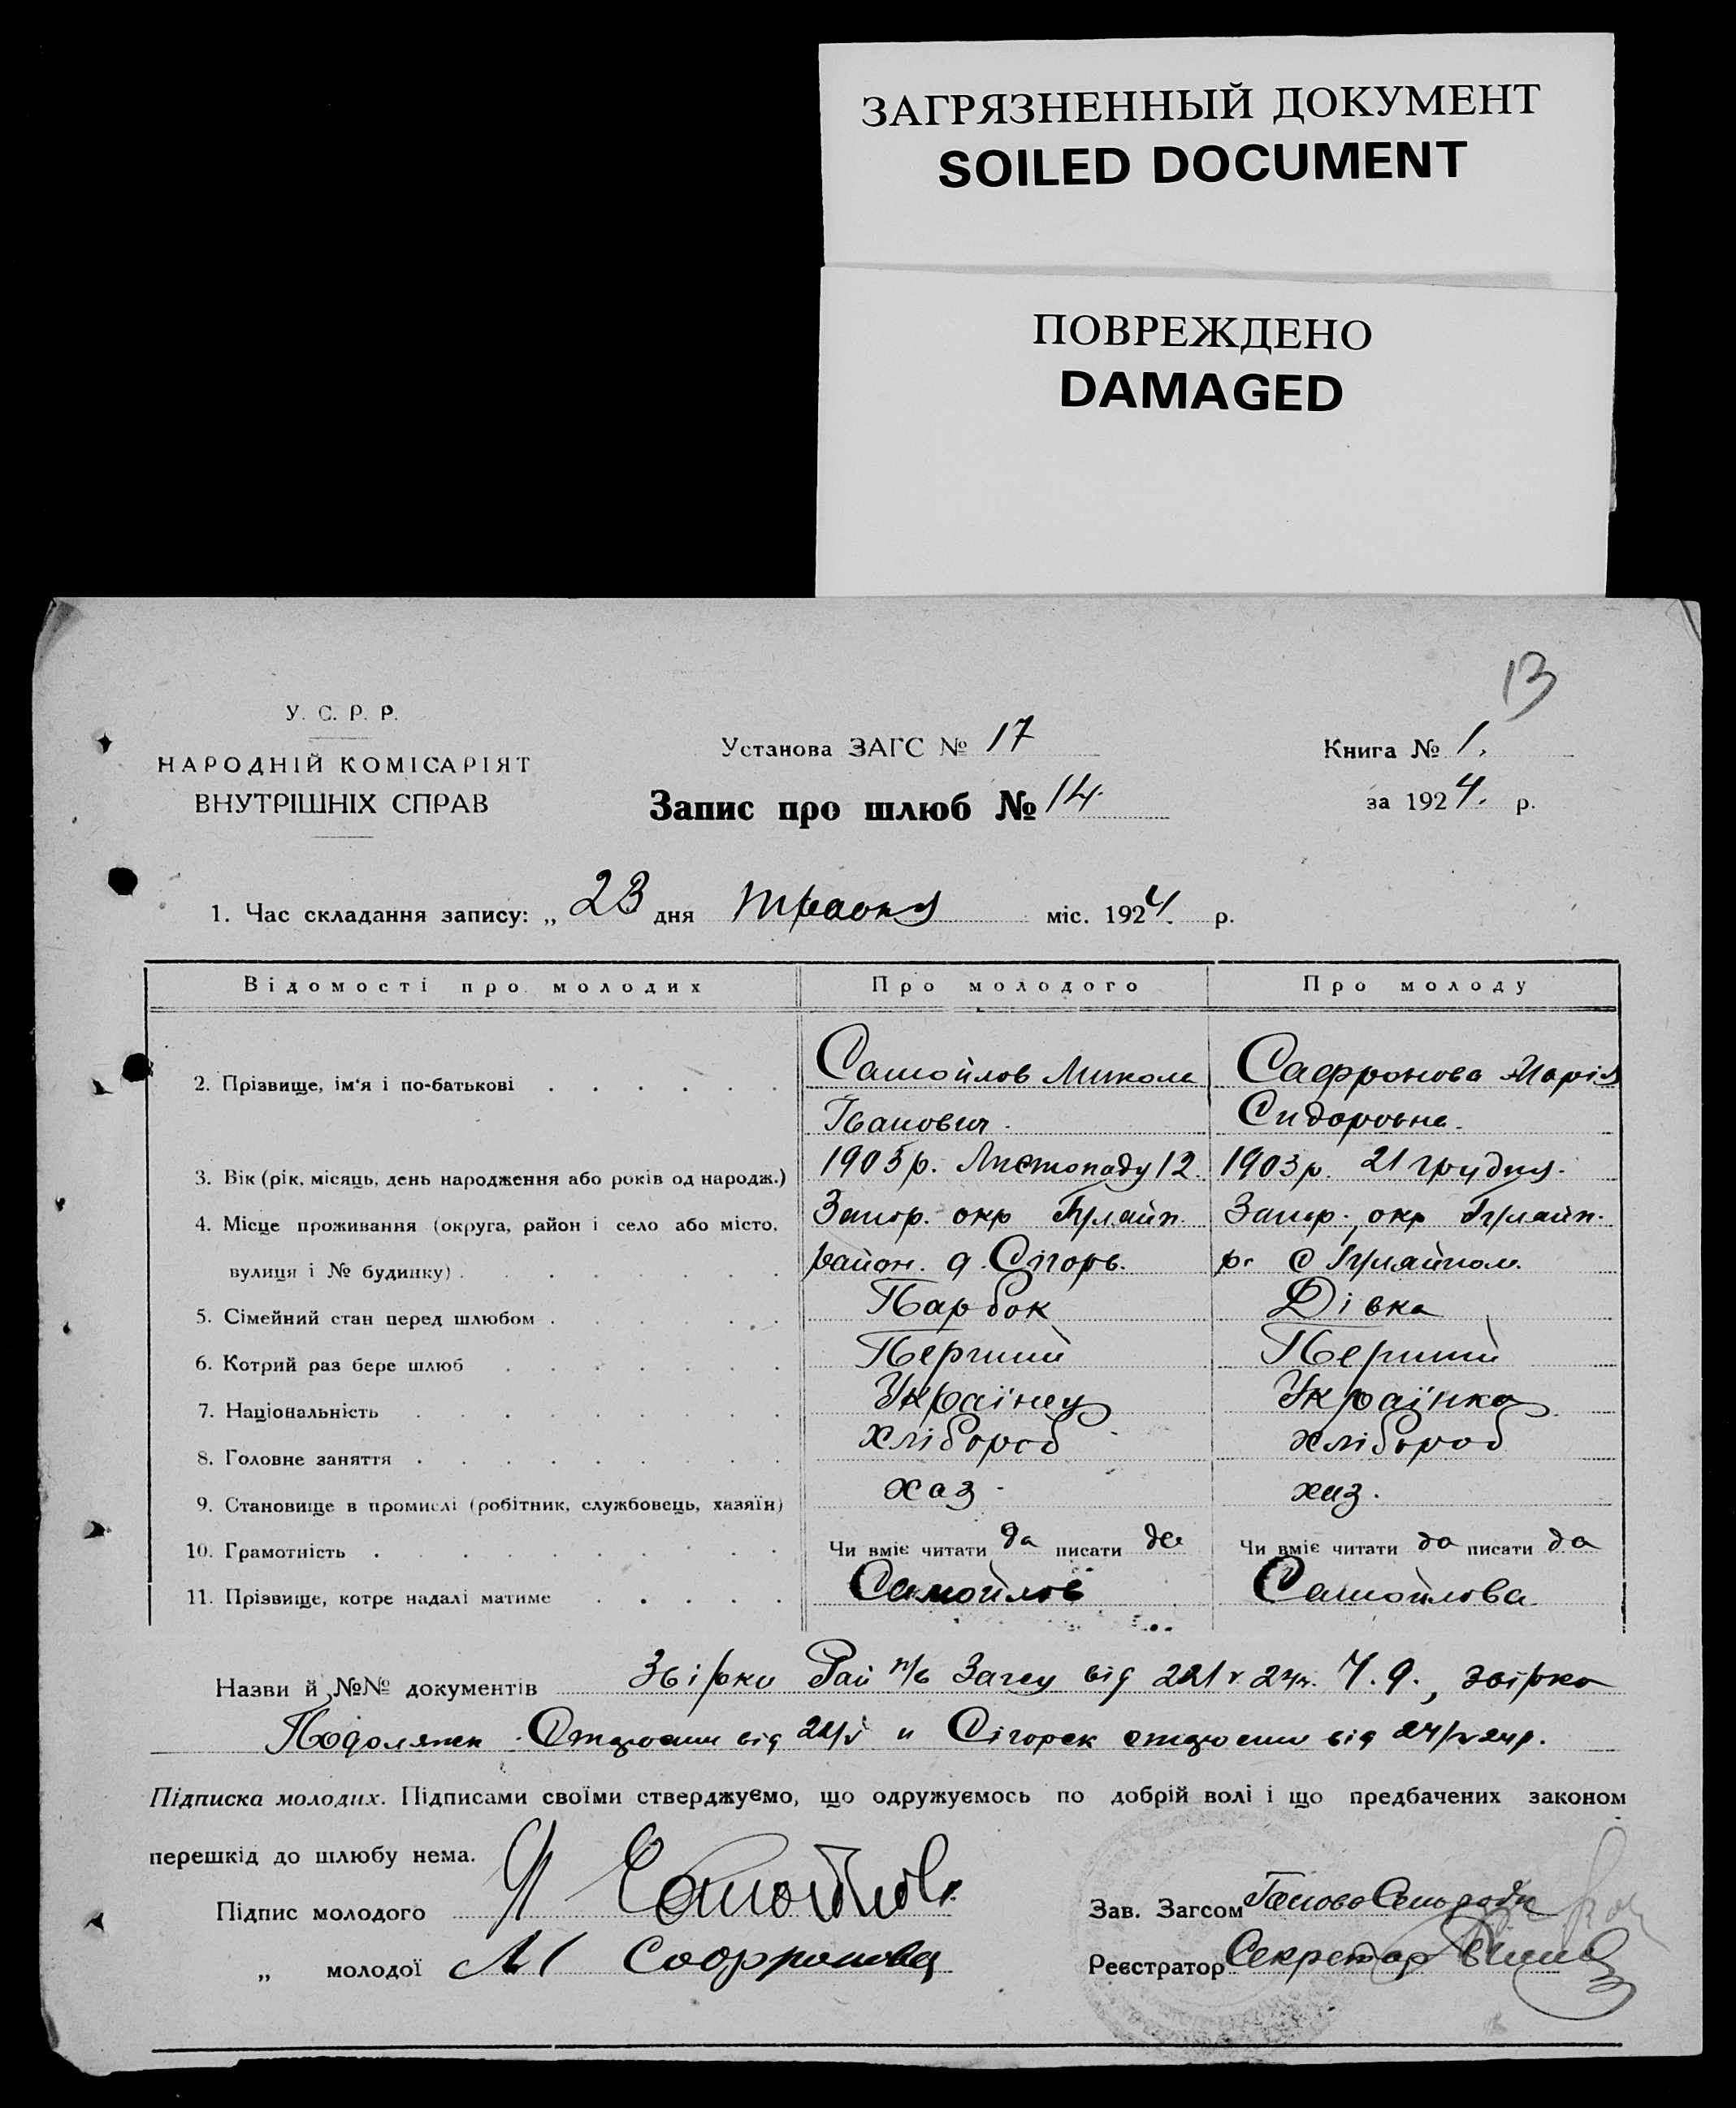 ЗАГРЯЗНЕННЫЙ ДОКУМЕНТ
SOILED DOCUMENT
ПОВРЕЖДЕНО
DAMAGED
13
У. С. Р. Р.
НАРОДНІЙ КОМІСАРІЯТ
ВНУТРІШНІХ СПРАВ
Установа ЗАГС № 17
Запис про шлюб № 14.
Книга № 1.
за 1924. р.
1. Час складання запису: „ 23 дня травня міс. 1924. р.
Відомості про молодих Про молодого Про молоду
2. Прізвище, ім'я і по-батькові Самойлов Микола Сафронова Марія
Іванович. Сидоровна.
3. Вік (рік, місяць, день народження або років од народж.) 1905 р. Листопаду 12. 1903 р. 21 грудня.
4. Місце проживання (округа, район і село або місто, Запор. окр Гуляйп. Запор. окр Гуляйп.
вулиця і № будинку) район. р. с Гуляйпол.
5. Сімейний стан перед шлюбом Парубок Дівка
6. Котрий раз бере шлюб Перший Перший
7. Національність Українец Українка
8. Головне заняття хлібороб хлібороб
9. Становище в промислі (робітник, службовець, хазяїн) хаз. хаз.
10. Грамотність Чи вміє читати да писати да Чи вміє читати да писати да
11. Прізвище, котре надалі матиме Самойлов Самойлова
Назви й №№ документів Рай п/в Загсу від
від 24/V и від
Підписка молодих. Підписами своїми стверджуємо, що одружуємось по добрій волі і що предбачених законом
перешкід до шлюбу нема.
Підпис молодого Самойлов
„ молодої М Софронова
Зав. Загсом Голова Сельради
Реєстратор Секретар